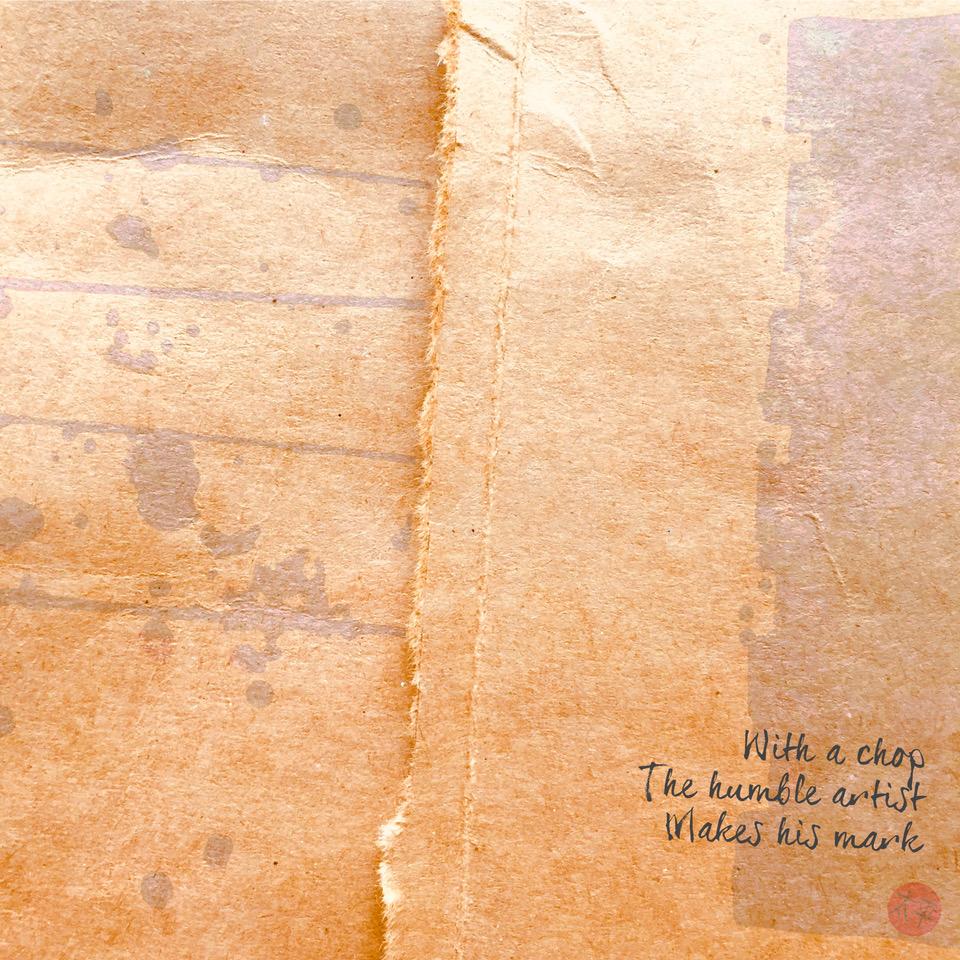 With a chop
The humble artist
Makes his mark